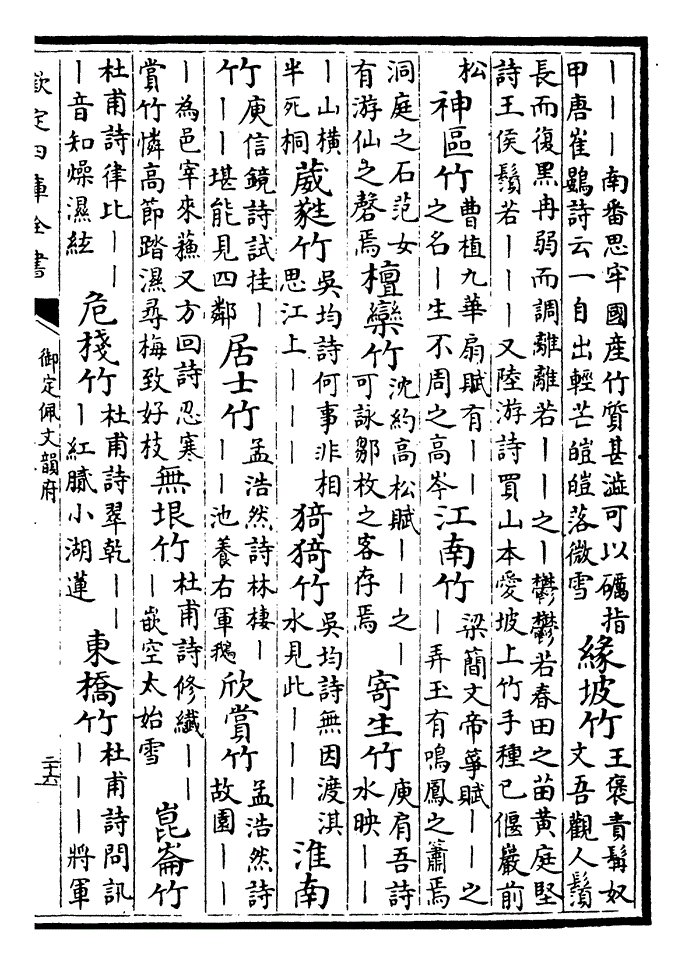 ｜｜｜南番思牢國產竹質甚澁可以礪指甲唐崔鷃詩云一自出輕芒皚皚落微雪緣坡竹王褒責髯奴文吾觀人鬚
長而復黑冉弱而調離離若｜｜之｜鬱鬱若春田之苗黄庭堅詩王侯鬚若｜｜｜｜又陸游詩買山本愛坡上竹手種已偃巖前
松神區竹曹植九華扇賦有｜｜之名｜生不周之高岑江南竹梁簡文帝箏賦｜｜之｜弄玉有鳴鳳之簫焉
洞庭之石范女有游仙之磬焉檀欒竹沈約高松賦｜｜之｜可詠鄒枚之客存焉寄生竹庾肩吾詩水映｜｜
｜山横半死桐葳蕤竹吳均詩何事非相思江上｜｜｜猗猗竹吳均詩無因渡淇水見此｜｜｜淮南
竹庾信鏡詩試挂｜｜｜堪能見四鄰居士竹孟浩然詩林棲｜｜｜池養右軍鵝欣賞竹孟浩然詩故園｜｜
｜為邑宰來蘓又方回詩忍寒賞竹憐高節踏濕尋梅致好枝無垠竹杜甫詩修纎｜｜｜嵌空太始雪崑崙竹
杜甫詩律比｜｜｜｜音知燥濕絃危棧竹杜甫詩翠乾｜｜｜紅膩小湖蓮東橋竹杜甫詩問訊｜｜｜將軍
欽定四庫全書
御定佩文韻府
二十六